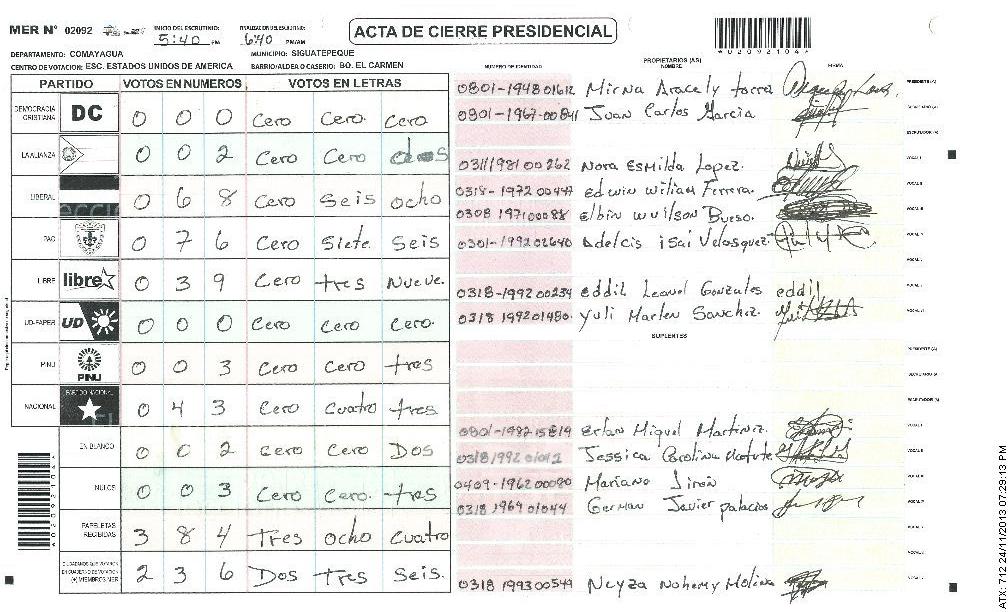 MER Nº 02092
INICIO DEL ESCRUTINIO: 5:40 PM
FINALIZACION DEL ESCRUTINIO: 6:40 PM/AM
ACTA DE CIERRE PRESIDENCIAL
*02092104*
DEPARTAMENTO: COMAYAGUA MUNICIPIO: SIGUATEPEQUE
CENTRO DE VOTACION: ESC. ESTADOS UNIDOS DE AMERICA BARRIO/ALDEA O CASERIO: BO. EL CARMEN
PARTIDO VOTOS EN NUMEROS VOTOS EN LETRAS
DEMOCRACIA CRISTIANA DC 0 0 0 Cero Cero Cero
LA ALIANZA 0 0 2 Cero Cero
LIBERAL 0 6 8 Cero Seis Ocho
PAC 0 7 6 Cero Siete Seis
LIBRE libre 0 3 9 Cero tres Nueve.
UD-FAPER UD 0 0 0 Cero Cero Cero.
PINU PINU 0 0 3 Cero Cero tres
NACIONAL PARTIDO NACIONAL 0 4 3 Cero Cuatro tres
EN BLANCO 0 0 2 Cero Cero Dos
NULOS 0 0 3 Cero Cero. tres
PAPELETAS RECIBIDAS 3 8 4 Tres Ocho Cuatro
CIUDADANOS QUE VOTARON EN CUADERNO DE VOTACION (+) MIEMBROS MER 2 3 6 Dos Tres Seis.
NUMERO DE IDENTIDAD PROPIETARIOS (AS) NOMBRE FIRMA
0801-194801612 Mirna Aracely PRESIDENTE (A)
0801-1967-00841 Juan Carlos Garcia SECRETARIO (A)
ESCRUTADOR (A)
0311198100262 Nora Esmilda Lopez. VOCAL I
0318-197200447 Edwin Wiliam Ferrera. VOCAL II
0308 197100088 Elbin Wuilson Bueso. VOCAL III
0301-199202640 Adelcis isai Velasquez VOCAL IV
VOCAL V
0318-199200234 eddil Leonel Gonzales eddil
0318 199201480 Yuli Marlen Sanchez.
SUPLENTES
PRESIDENTE (A)
SECRETARIO (A)
ESCRUTADOR (A)
0801-198215819 Erlan Miguel Martinez.
Jessica Carolina
0409-196200080 Mariano Jiron
0318 196901044 German Javier palacios
0318 199300549 Neyza Nohemy Molina
ATX: 712 24/11/2013 07:29:13 PM